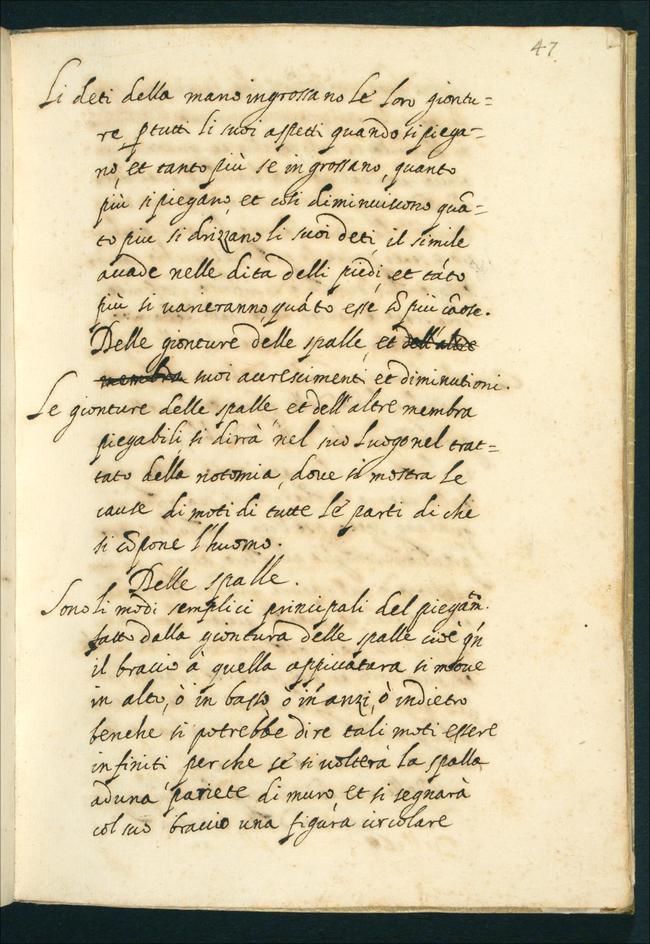 47
Li deti della mano ingrossano le loro giontu=
re p tutti li suoi aspetti quando si piega-
no, et tanto più se ingrossano, quanto
più si piegano, et così diminuiscono quã-
to piu si drizzano li suoi deti, il simile
accade nelle dita delli piedi, et tãto
più si varieranno, quãto esse sõ più carnose.
Delle gionture delle spalle, et dell'altre
membra suoi accrescimenti et diminutioni.
Le gionture delle spalle et dell'altre membra
piegabili si dirrà nel suo luogo nel trat=
tato della notomia, dove si mostra le
cause di moti di tutte le parti di che
si cõpone l'huomo.
Delle spalle.
Sono li modi semplici principali del piegam.to
fatto dalla giontura delle spalle cioè qñ
il braccio à quella appiccatura si move
in alto, ò in basso ò in'anzi, ò indietro
benche si potrebbe dire tali moti essere
infiniti perche se si volterà la spalla
ad una pariete di muro et si segnarà
col suo braccio una figura circolare